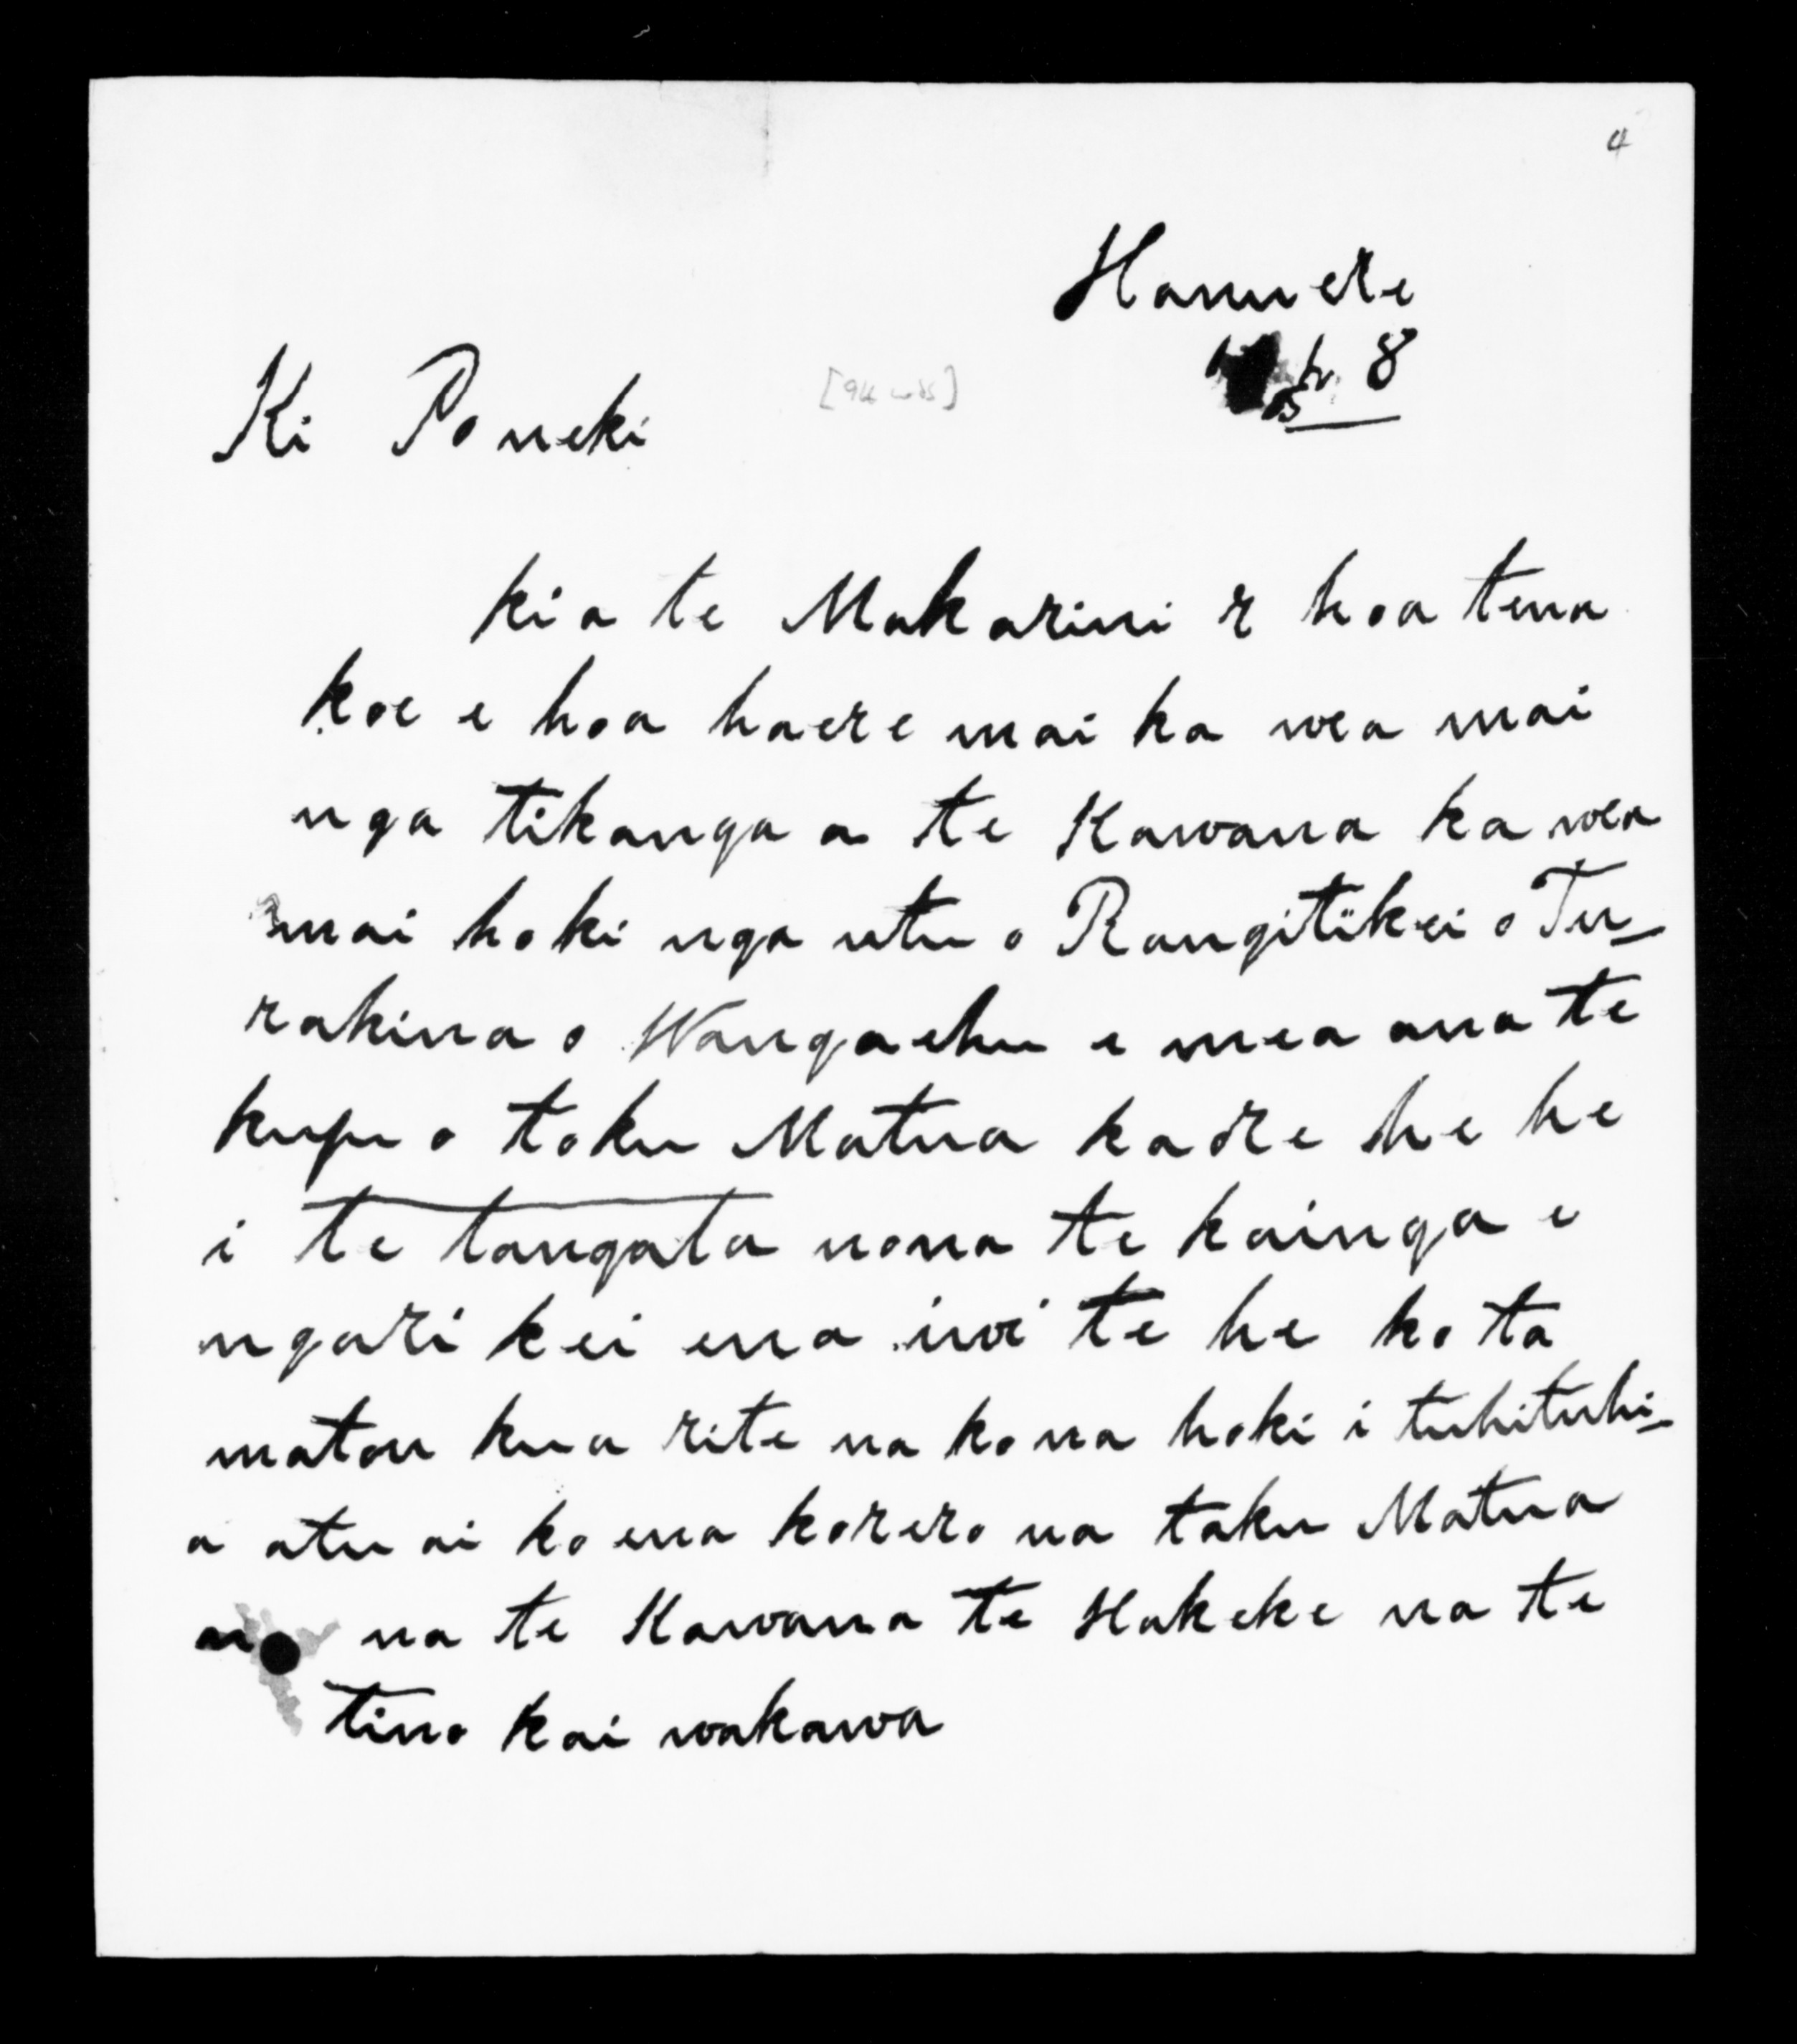 4
Hanuere
8
Ki Poneki
[94 wds]
kia te Makarini e hoa tena
koe e hoa haere mai ka wea mai
nga tikanga a te Kawana ka wea
mai hoki nga utu o Rangitikei o Tu_
rakina o Wangaehu e mea ana te
kupu o toku Matua kaore he he
i te tangata nona te kainga e
ngari kei ena iwi te he ko ta
matou kua rite na kona hoki i tuhituhi_
a atu ai ko ena korero na taku Matua
na te Kawana te Hakeke na te
tino kai wakawa